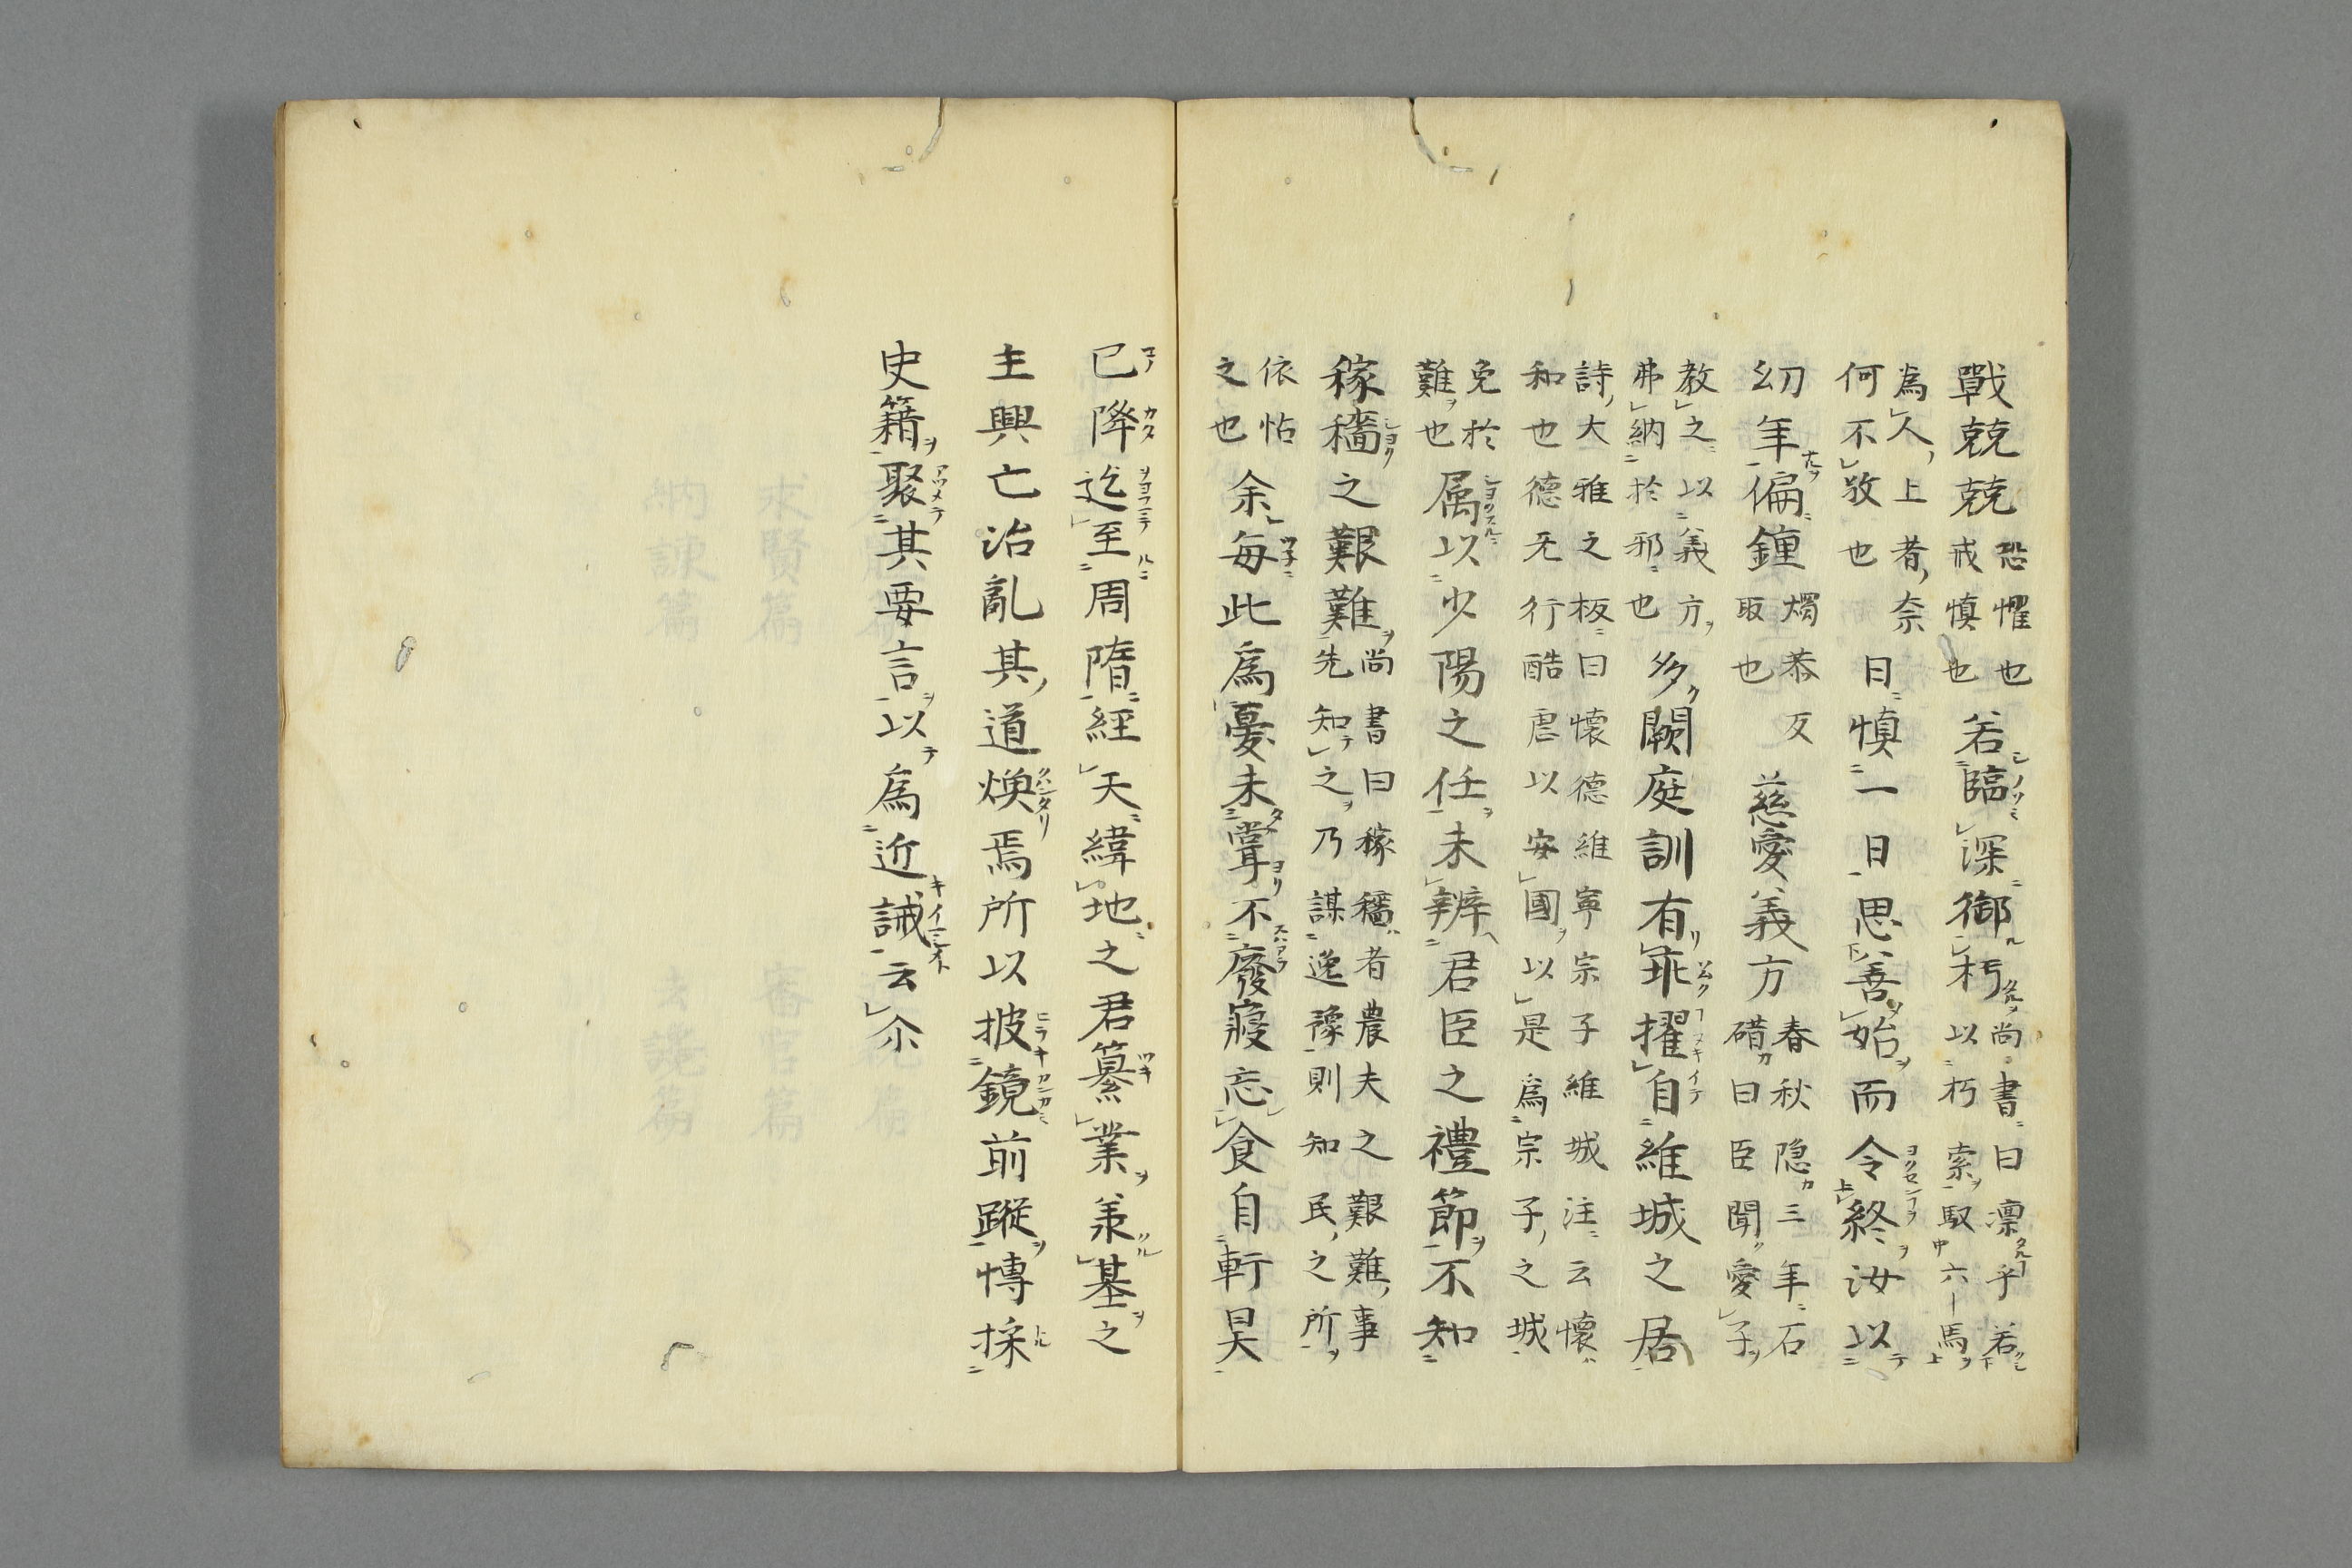 戰兢兢恐懼也戒慎也若臨深御朽尚書曰凛乎若以朽索馭六馬
為人上者奈何不敬也日慎一日思善始而令終汝以
幼年偏鍾燭恭反取也慈愛義方春秋隠三年石碏曰臣聞愛子
教之以義方弗納於邪也多闕庭訓有乖擢自維城之居
詩大雅之板曰懷德維寧宗子維城注云懷
和也德无行酷虐以安國以是為宗子之城
免於難也属以少陽之任未辨君臣之禮節不知
稼穡之艱難尚書曰稼穡者農夫之艱難事先知之乃謀逸豫則知民之所
依怙之也余每此為憂未甞不廢寢忘食自軒昊
已降迄至周隋経天緯地之君纂業承基之
主興亡治亂其道煥焉所以披鏡前蹤博採
史籍聚其要言以為近誡云尒